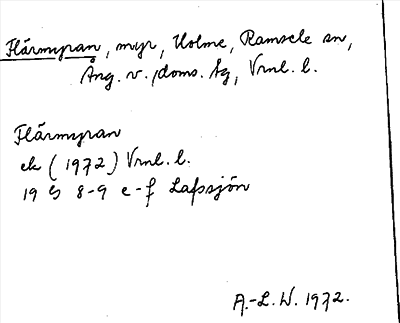 Flärmyran, myr, Holme, Ramsele sn,
Ång. v. doms. ltg, Vrnl. l.
Flärmyran
ek (1972) Vrnl. l.
19 G 8-9 e-f Lafssjön
A.-L. W. 1972.